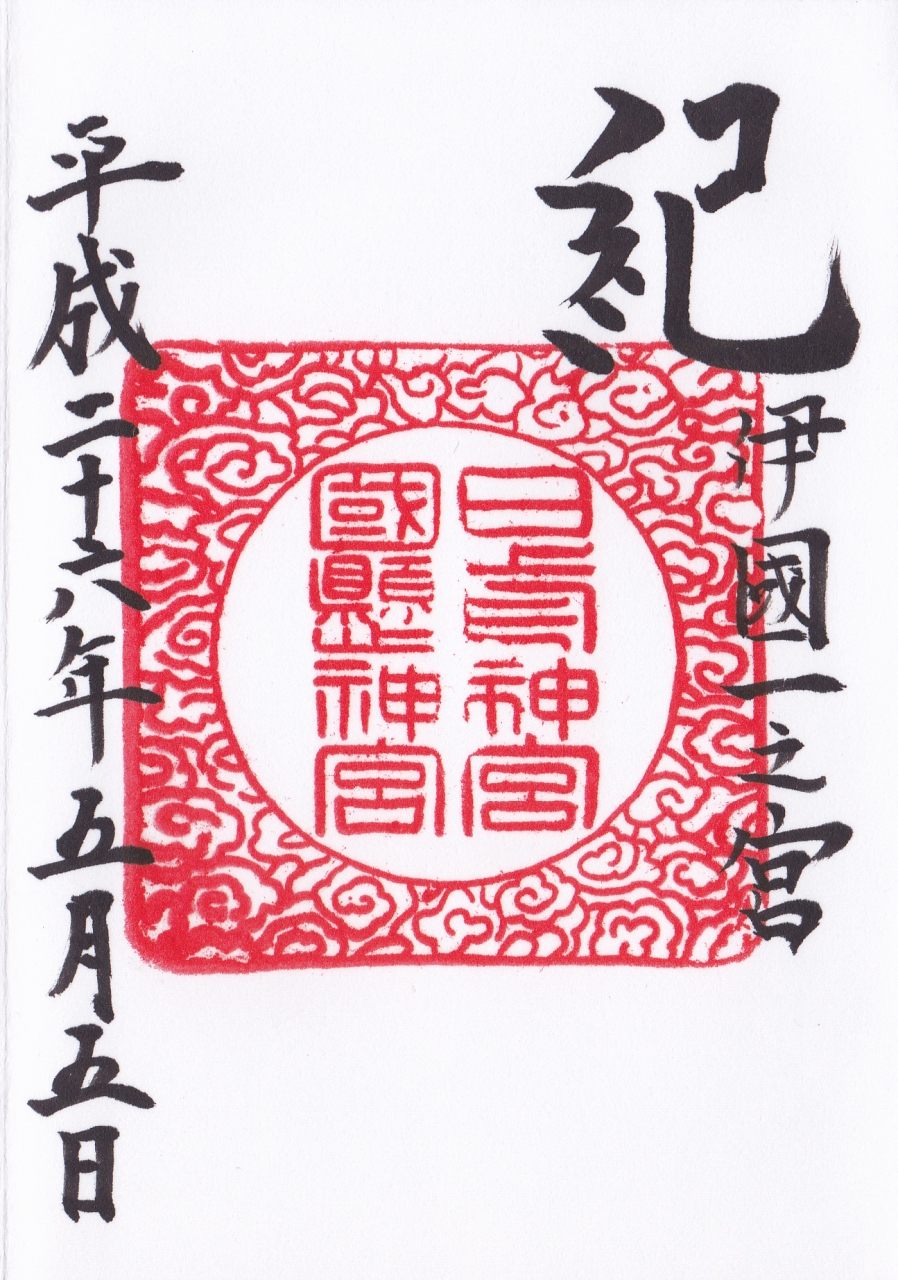 紀伊國一之宮
日前神宮
國懸神宮
平成二十六年五月五日